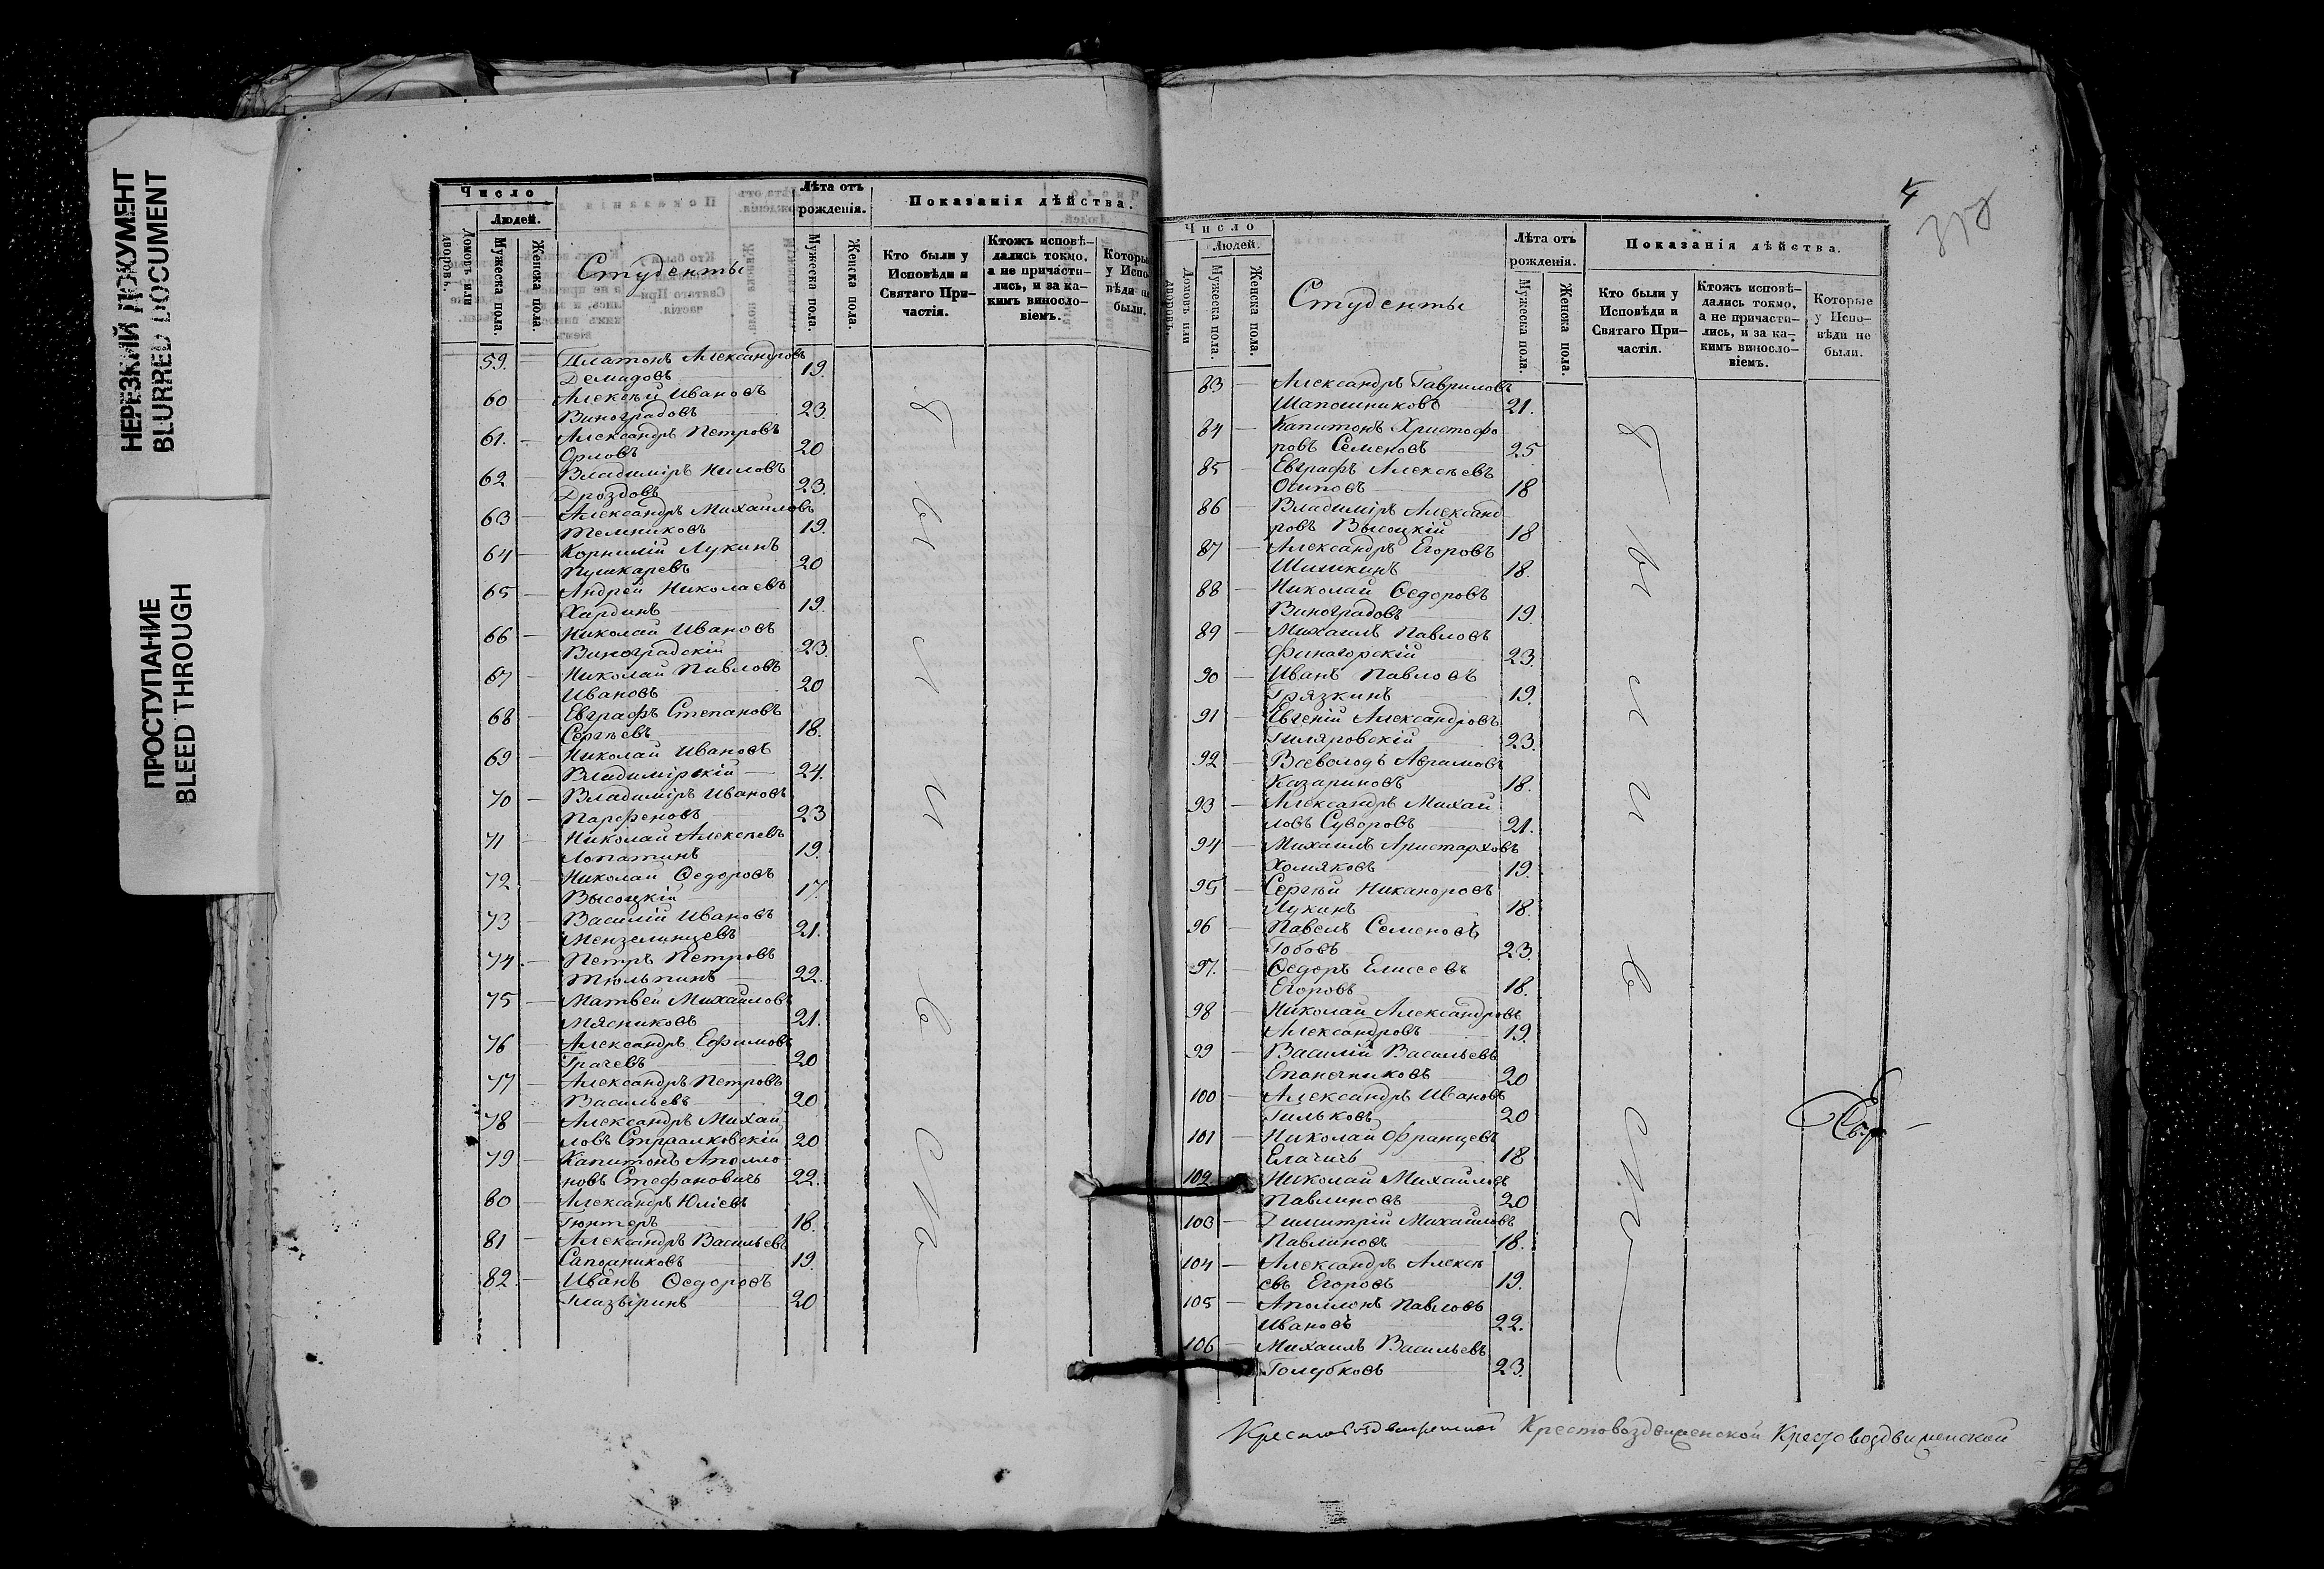 НЕРЕЗКИЙ ДОКУМЕНТ
BLURRED DOCUMENT
ПРОСТУПАНИЕ
BLEED THROUGH
Число
Людей.
Домовъ или дворовъ.
Мужеска пола.
Женска пола.
Студенты
Лѣта отъ рожденія.
Мужеска пола.
Женска пола.
Показанія дѣйства.
Кто были у Исповѣди и Святаго При-
частія.
Ктожъ исповѣ-
дались токмо,
а не причасти-
лись, и за ка-
кимъ виносло-
віемъ.
Которы
у Испо
вѣди не
были.
59. — Платонъ Александровъ
Демидовъ 19.
60 — Алексѣй Ивановъ
Виноградовъ 23.
61. — Александръ Петровъ
Орловъ 20
62 — Владиміръ Ниловъ
Дроздовъ 23.
63 — Александръ Михайловъ
Темниковъ 19.
64 — Корнилій Лукинъ
Пушкаревъ 20
65 — Андрей Николаевъ
Хардинъ 19.
66 — Николай Ивановъ
Виноградскій 23.
67 — Николай Павловъ
Ивановъ 20
68 — Евграфъ Степановъ
Сергѣевъ 18.
69 — Николай Ивановъ
Владимірскій — 24.
70 — Владиміръ Ивановъ
Парфеновъ 23
71 — Николай Алексѣевъ
Лопатинъ 19.
72 — Николай Ѳедоровъ
Высоцкій 17.
73 — Василій Ивановъ
Мензелинцевъ 21.
74. — Петръ Петровъ
Тюльпинъ 22.
75 — Матвей Михайловъ
Мясниковъ 21.
76 — Александръ Ефимовъ
Грачевъ 20
77 — Александръ Петровъ
Васильевъ 20
78 — Александръ Михай
ловъ 20
79 — Капитонъ Аполло-
новъ Стефановичъ 22.
80 — Александръ Юліевъ
Гюнтеръ 18.
81 — Александръ Васильевъ
Сапожниковъ 19.
82. — Иванъ Ѳедоровъ
Глазыринъ 20
были
у
св
Число
Людей.
Домовъ или дворовъ.
Мужеска пола.
Женска пола.
Студенты
Лѣта отъ рожденія.
Мужеска пола.
Женска пола.
Показанія дѣйства.
Кто были у
Исповѣди и
Святаго При-
частія.
Ктожъ исповѣ-
дались токмо,
а не причасти-
лись, и за ка-
кимъ виносло-
віемъ.
Которые
у Испо-
вѣди не
были.
83 — Александръ Гавриловъ
Шапошниковъ 21.
84 — Капитонъ Христофо
ровъ Семеновъ 25
85 — Евграфъ Алексѣевъ
Осиповъ 18
86 — Владиміръ Александ
ровъ Высоцкій 18
87 — Александръ Егоровъ
Шишкинъ 18.
88 — Николай Ѳедоровъ
Виноградовъ 19
89 — Михаилъ Павловъ
Финагорскій 23.
90 — Иванъ Павловъ
Грязкинъ 19.
91 — Евгеній Александровъ
Гиляровскій 23.
92 — Всеволодъ Аврамовъ
Казариновъ 18.
93 — Александръ Михай
ловъ Суворовъ 21.
94 — Михаилъ Аристарховъ
Хомяковъ 19.
95 — Сергѣй Никаноровъ
Лукинъ 18.
96 — Павелъ Семеновъ
Гобовъ 23.
97. — Ѳедоръ Елисеевъ
Егоровъ 18.
98 — Николай Александровъ
Александровъ 19.
99 — Василій Васильевъ
Епанечниковъ 20
100 — Александръ Ивановъ
Гильковъ 20
101 — Николай Францевъ
Елачичъ 18
102 — Николай Михайловъ
Павлиновъ 20
103 — Димитрій Михайловъ
Павлиновъ 18.
104 — Александръ Алексѣ
евъ Егоровъ 19.
105 — Аполлонъ Павловъ
Ивановъ 22.
106 — Михаилъ Васильевъ
Голубковъ 23.
Крестовоздвиженской Крестовоздвиженской Крестовоздвиженской